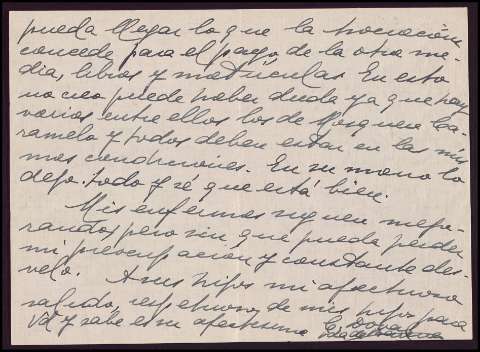 pueda llegar lo que la Asociación
concede para el pago de la otra me-
dia, libros y matrículas. En esto
no creo puede haber duda ya que hay
varios entre ellos los de Mosquera Ca-
ramelo y todos deben estar en las mis
mas condiciones. En su mano lo
dejo todo y sé que está bien.
Mis enfermos siguen mejo-
rando pero sin que pueda perder
mi preocupación y constante des-
velo. A sus hijos mi afectuoso
saludo, respetuoso de mis hijos para
Vd y sabe es su afectísima